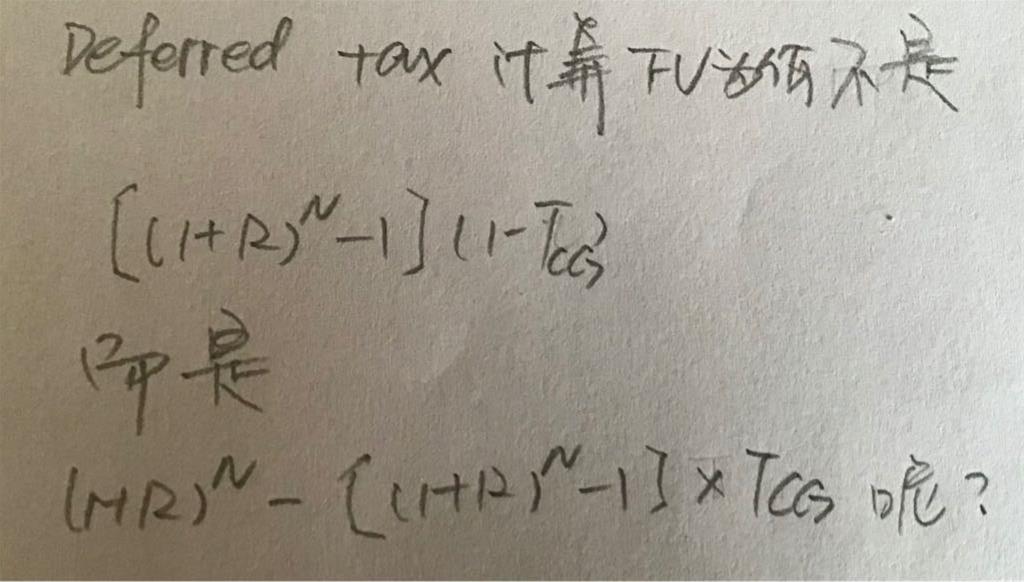 Deferred tax 计算 FV 为何不是
[(1+R)^N-1](1-T_CG)
而是
(1+R)^N-[(1+R)^N-1]×T_CG 呢?